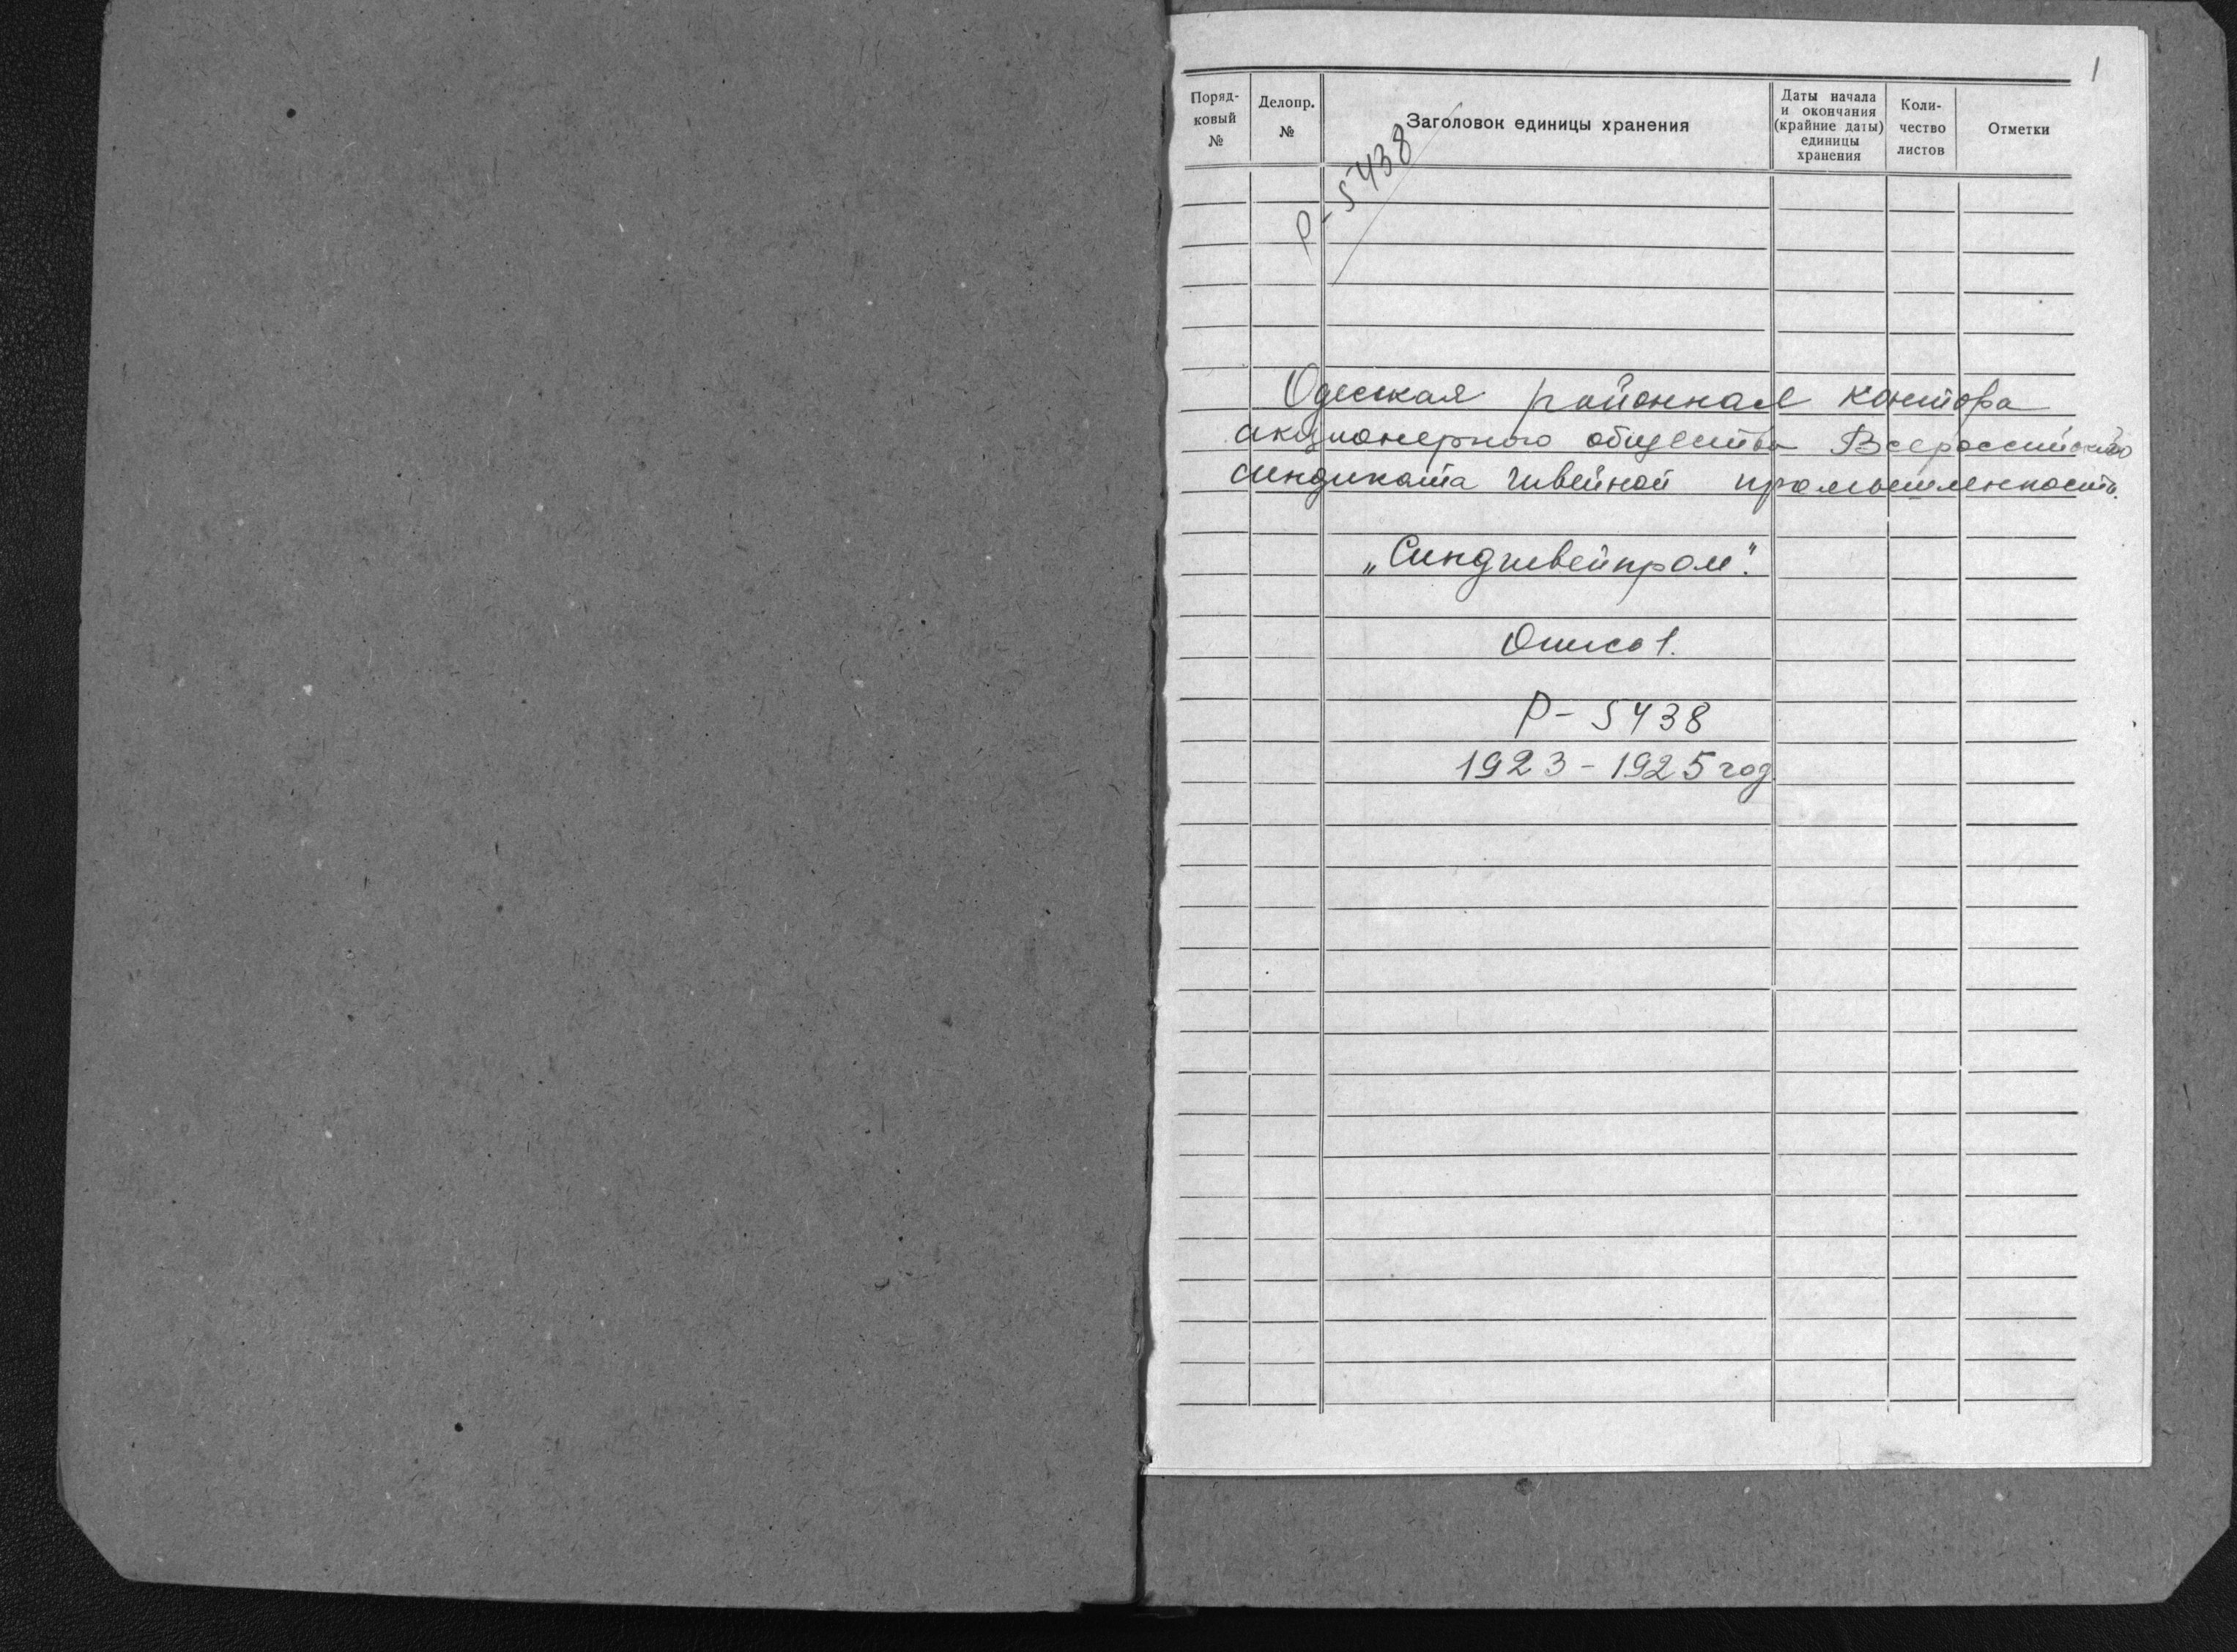 1
Поряд-
ковый
№
Делопр.
№
Заголовок единицы хранения
Даты начала
и окончания
(крайние даты)
единицы
хранения
Коли-
чество
листов
Отметки
Р-5438
Одесская районная контора
акционерного общества Всероссийского
синдиката швейной промышленности.
„Синдшвейпром".
Опись 1.
Р-5438
1923-1925 год